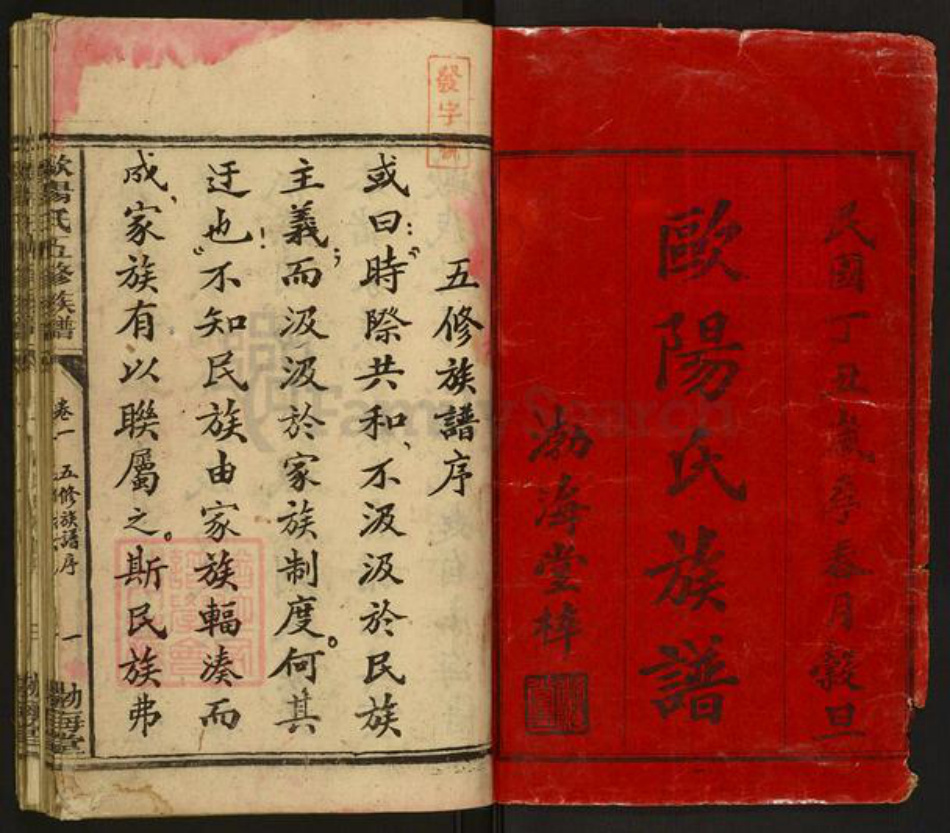 民國丁丑歲季春月穀旦
歐陽氏族譜
渤海堂梓
發字號
五修族譜序
或曰：“時際共和、不汲汲於民族
主義；而汲汲於家族制度。何其
迂也！”不知民族由家族輻湊而
成、家族有以聯屬之。斯民族弗
歐陽氏五修族譜
卷一
五修族譜序
一
渤海堂
FamilySearch